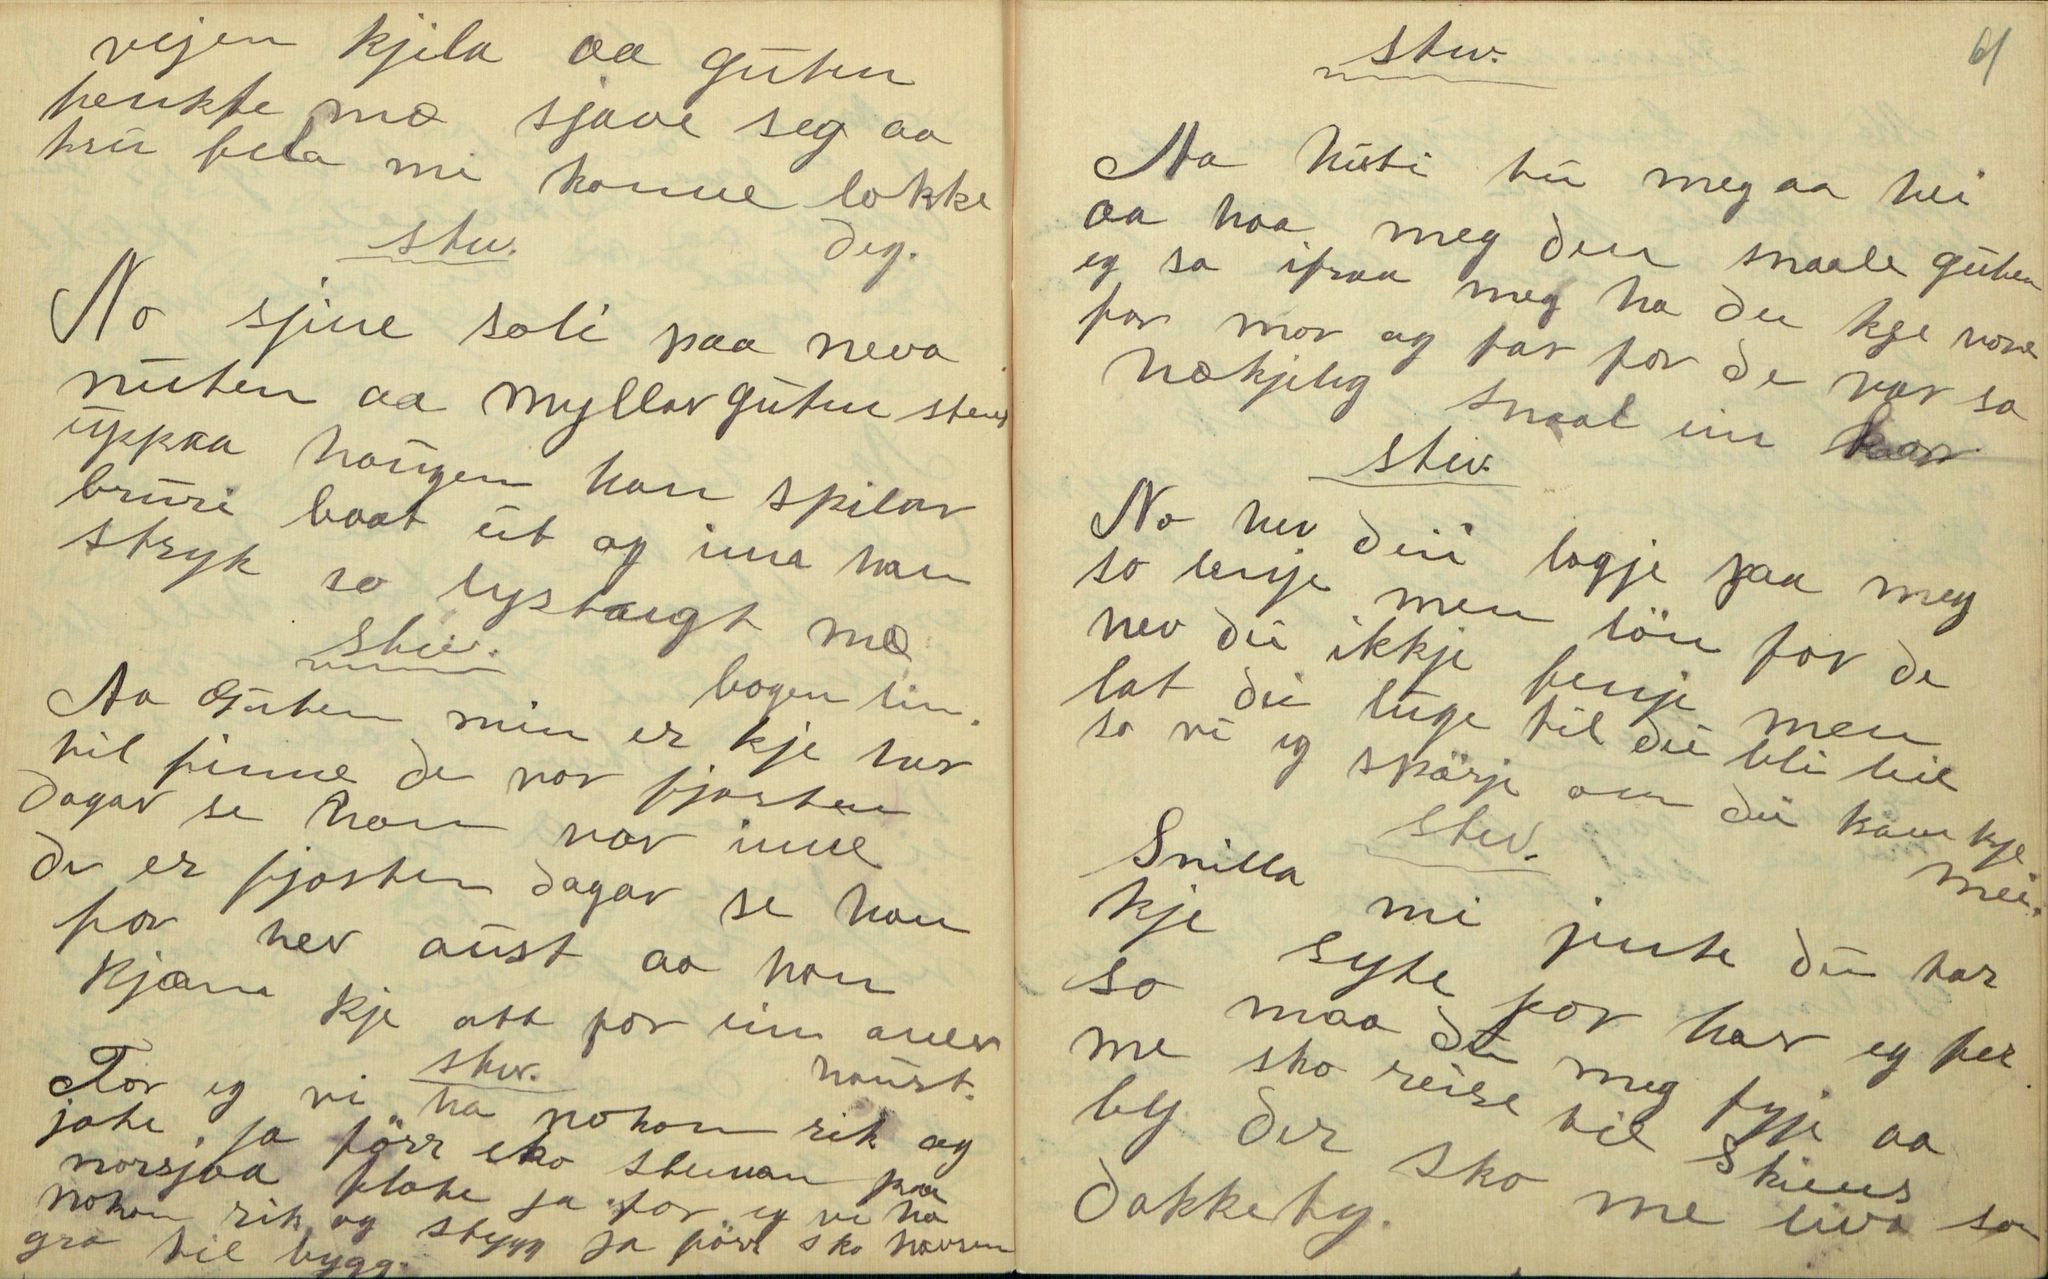 vejen kjila aa guten
tenkte mæ sjave seg aa
tru fela mi konne lokke
deg.
stev.
No sjine soli paa neva
nuten aa myllarguten sten
uppaa haugen han spilar
bruri baat ut og inna han
stryk so lystaugt mæ
bogen sin.
stev.
Aa Guten min er kje her
til finne de var fjorten
dagar se han var inne
de er fjorten dagar se han
for her aust aa han
kjæm kje att for ein anen
haust.
stev.
For eg vi ha nokon rik og
jote, ja förr sko steinan paa
norsjaa flote ja for eg vi ha
nokon rik og stygg ja förr sko havren
gro til bygg.
61
stev.
Aa huti tu meg aa hei
aa haa meg den snaale guten
eg sa ifraa meg ha de kje vore
for mor og far for de var so
nækjileg snaal ein kar
stev.
No hev du logje paa meg
so lenje men lön for de
hev du ikkje fenje men
lat du luge til du bli leie
so vi eg spörje om du kan kje
mei.
stev.
Snilla mi jente du tar
kje syte for her eg fer
so maa du meg fyje aa
me sko reise til Skiens
by der sko me leva so
dakkerty.